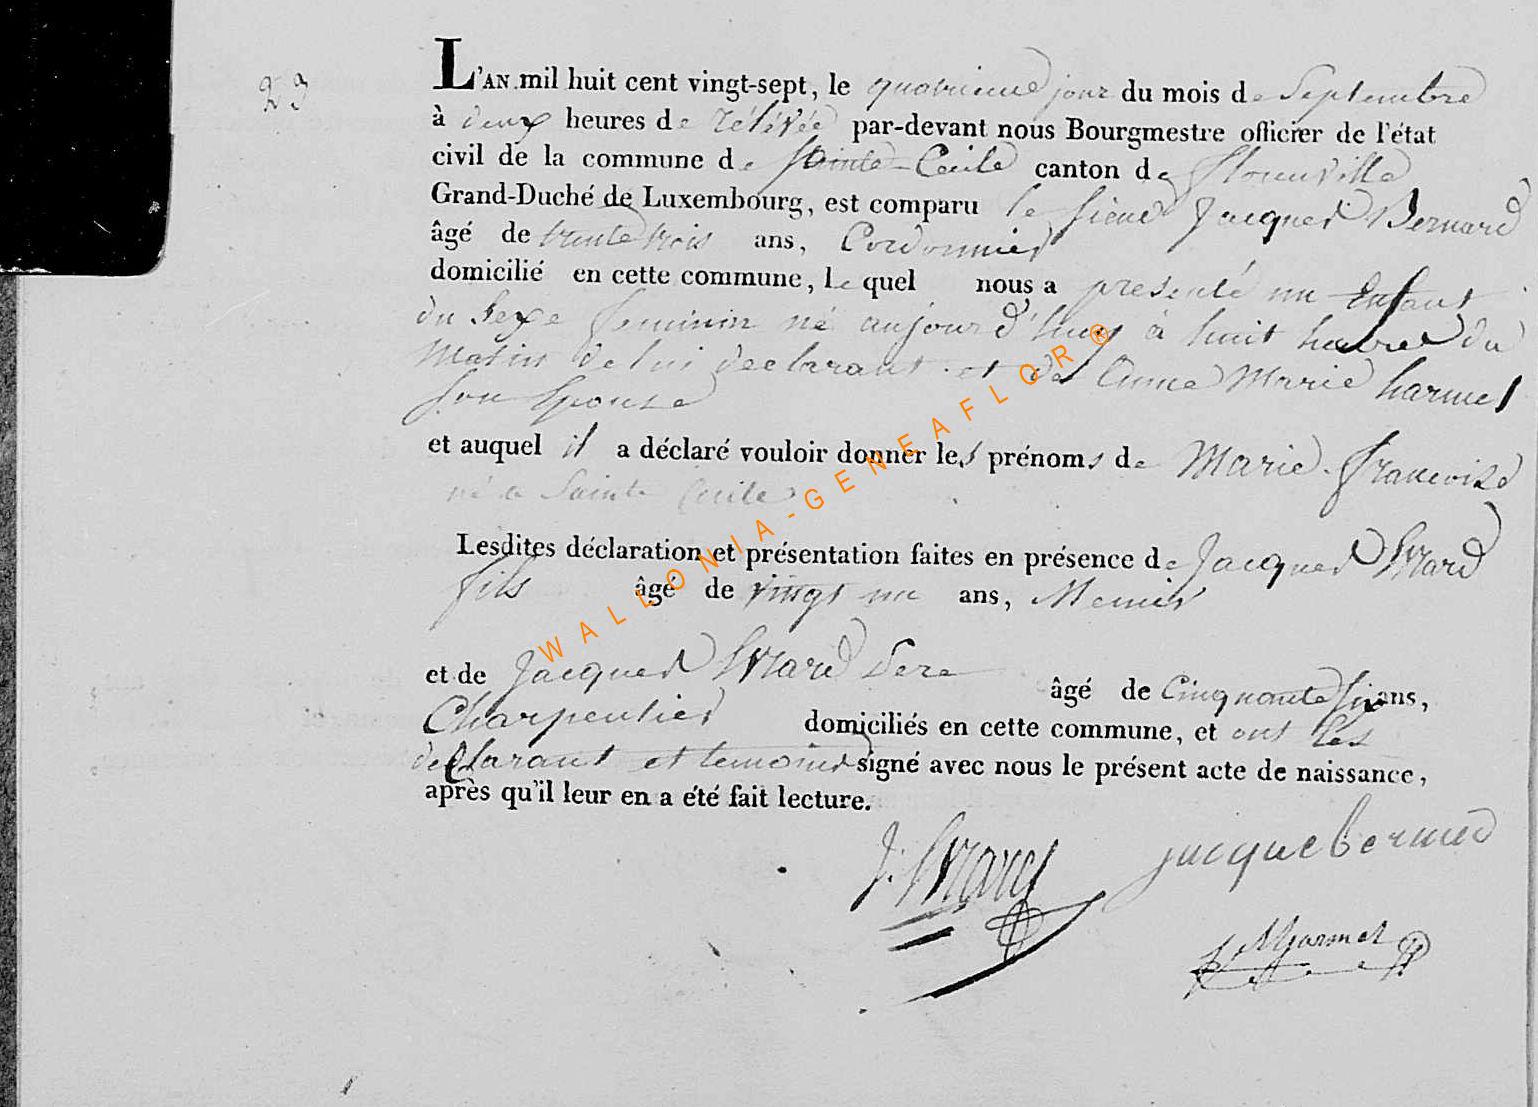 23
L'AN mil huit cent vingt-sept, le quatrieme jour du mois de Septembre
à deux heures de rélévée par-devant nous Bourgmestre officier de l'état
civil de la commune de Sainte-Cecile canton de florenville
Grand-Duché de Luxembourg, est comparu le sieur Jacques Bernard
âgé de trente trois ans, Cordonnier
domicilié en cette commune, le quel nous a presenté un Enfant
du Sexe feminin né aujourd'huy à huit heures du
Matin de lui declarant et de Anne Marie harmel
Son Epouse
et auquel il a déclaré vouloir donner les prénoms de Marie françoise
né a Sainte Cecile
Lesdites déclaration et présentation faites en présence de Jacques Evrard
fils âgé de vingt un ans, Menuisier
et de Jacques Evrard Pere âgé de Cinquante six ans,
Charpentier domiciliés en cette commune, et ont les
declarant et temoins signé avec nous le présent acte de naissance,
après qu'il leur en a été fait lecture.
J. Evrard jacque bernard
Harmel
WALLONIA-GENEAFLOR®